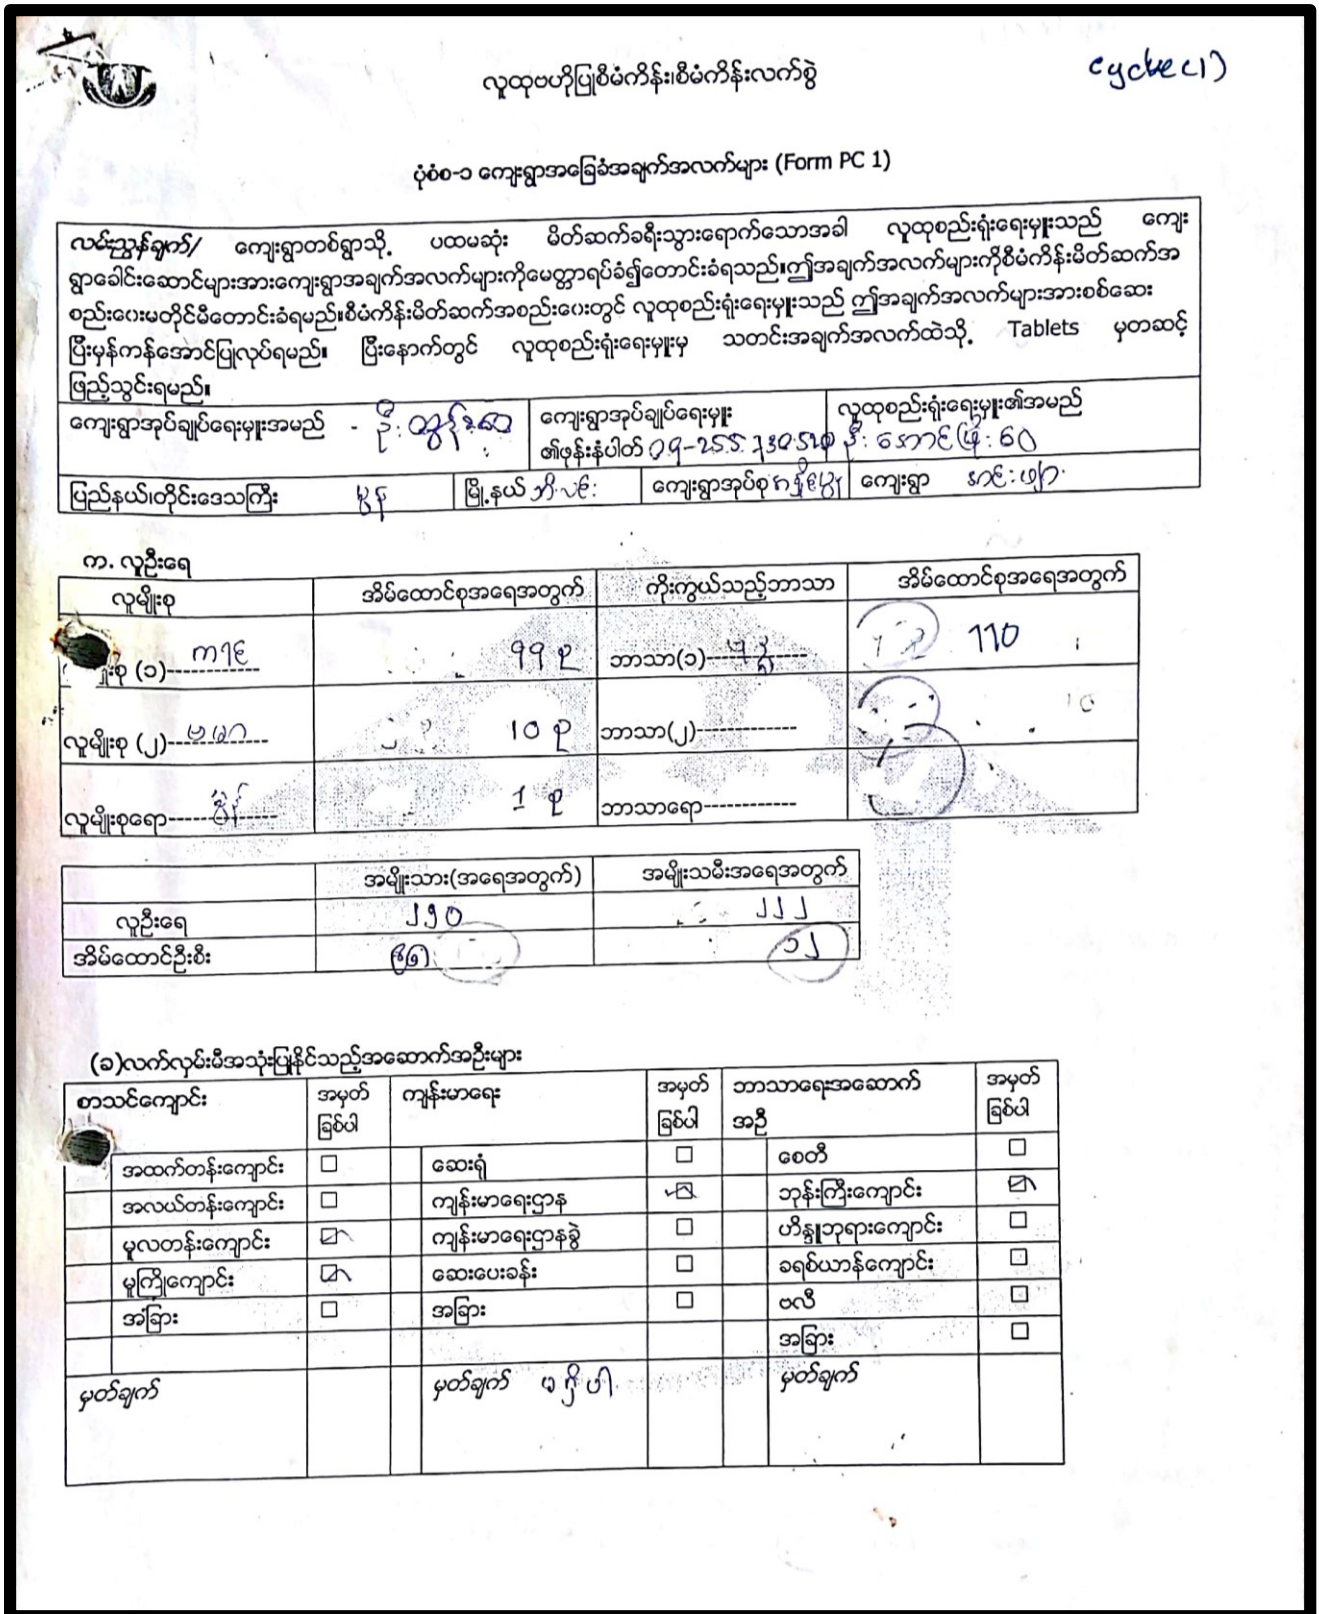 cycle (1)
လူထုဗဟိုပြုစီမံကိန်း၊စီမံကိန်းလက်စွဲ
ပုံစံစ-၁ ကျေးရွာအခြေခံအချက်အလက်များ (Form PC 1)
လမ်းညွှန်ချက်/ ကျေးရွာတစ်ရွာသို့ ပထမဆုံး မိတ်ဆက်ခရီးသွားရောက်သောအခါ လူထုစည်းရုံးရေးမှူးသည် ကျေး
ရွာခေါင်းဆောင်များအားကျေးရွာအချက်အလက်များကိုမေတ္တာရပ်ခံ၍တောင်းခံရသည်။ဤအချက်အလက်များကိုစီမံကိန်းမိတ်ဆက်အ
စည်းဝေးမတိုင်မီတောင်းခံရမည်။စီမံကိန်းမိတ်ဆက်အစည်းဝေးတွင် လူထုစည်းရုံးရေးမှူးသည် ဤအချက်အလက်များအားစစ်ဆေး
ပြီးမှန်ကန်အောင်ပြုလုပ်ရမည်။ ပြီးနောက်တွင် လူထုစည်းရုံးရေးမှူးမှ သတင်းအချက်အလက်ထဲသို့ Tablets မှတဆင့်
ဖြည့်သွင်းရမည်။
ကျေးရွာအုပ်ချုပ်ရေးမှူးအမည် - ဦး ကျေးရွာအုပ်ချုပ်ရေးမှူး လူထုစည်းရုံးရေးမှူး၏အမည်
၏ဖုန်းနံပါတ် ဦး အောင်
ပြည်နယ်၊တိုင်းဒေသကြီး မွန် မြို့နယ် ဘီးလင်း ကျေးရွာအုပ်စု ကျေးရွာ
က. လူဦးရေ
လူမျိုးစု အိမ်ထောင်စုအရေအတွက် ကိုးကွယ်သည့်ဘာသာ အိမ်ထောင်စုအရေအတွက်
စု (၁)------------ ကရင် ၅၅ စု ဘာသာ(၁)------------ ဗုဒ္ဓ 110
လူမျိုးစု (၂)------------ ဗမာ 10 စု ဘာသာ(၂)------------
လူမျိုးစုရော------------ မွန် 1 စု ဘာသာရော------------
အမျိုးသား(အရေအတွက်) အမျိုးသမီးအရေအတွက်
လူဦးရေ ၂၅၀ ၂၂၂
အိမ်ထောင်ဦးစီး ၁၂
(ခ)လက်လှမ်းမီအသုံးပြုနိုင်သည့်အဆောက်အဦးများ
စာသင်ကျောင်း အမှတ် ကျန်းမာရေး အမှတ် ဘာသာရေးအဆောက် အမှတ်
ခြစ်ပါ ခြစ်ပါ အဦ ခြစ်ပါ
အထက်တန်းကျောင်း ☐ ဆေးရုံ ☐ စေတီ ☐
အလယ်တန်းကျောင်း ☐ ကျန်းမာရေးဌာန ☑ ဘုန်းကြီးကျောင်း ☑
မူလတန်းကျောင်း ☑ ကျန်းမာရေးဌာနခွဲ ☐ ဟိန္ဒူဘုရားကျောင်း ☐
မူကြိုကျောင်း ☑ ဆေးပေးခန်း ☐ ခရစ်ယာန်ကျောင်း ☐
အခြား ☐ အခြား ☐ ဗလီ ☐
အခြား ☐
မှတ်ချက် မှတ်ချက် မရှိပါ မှတ်ချက်